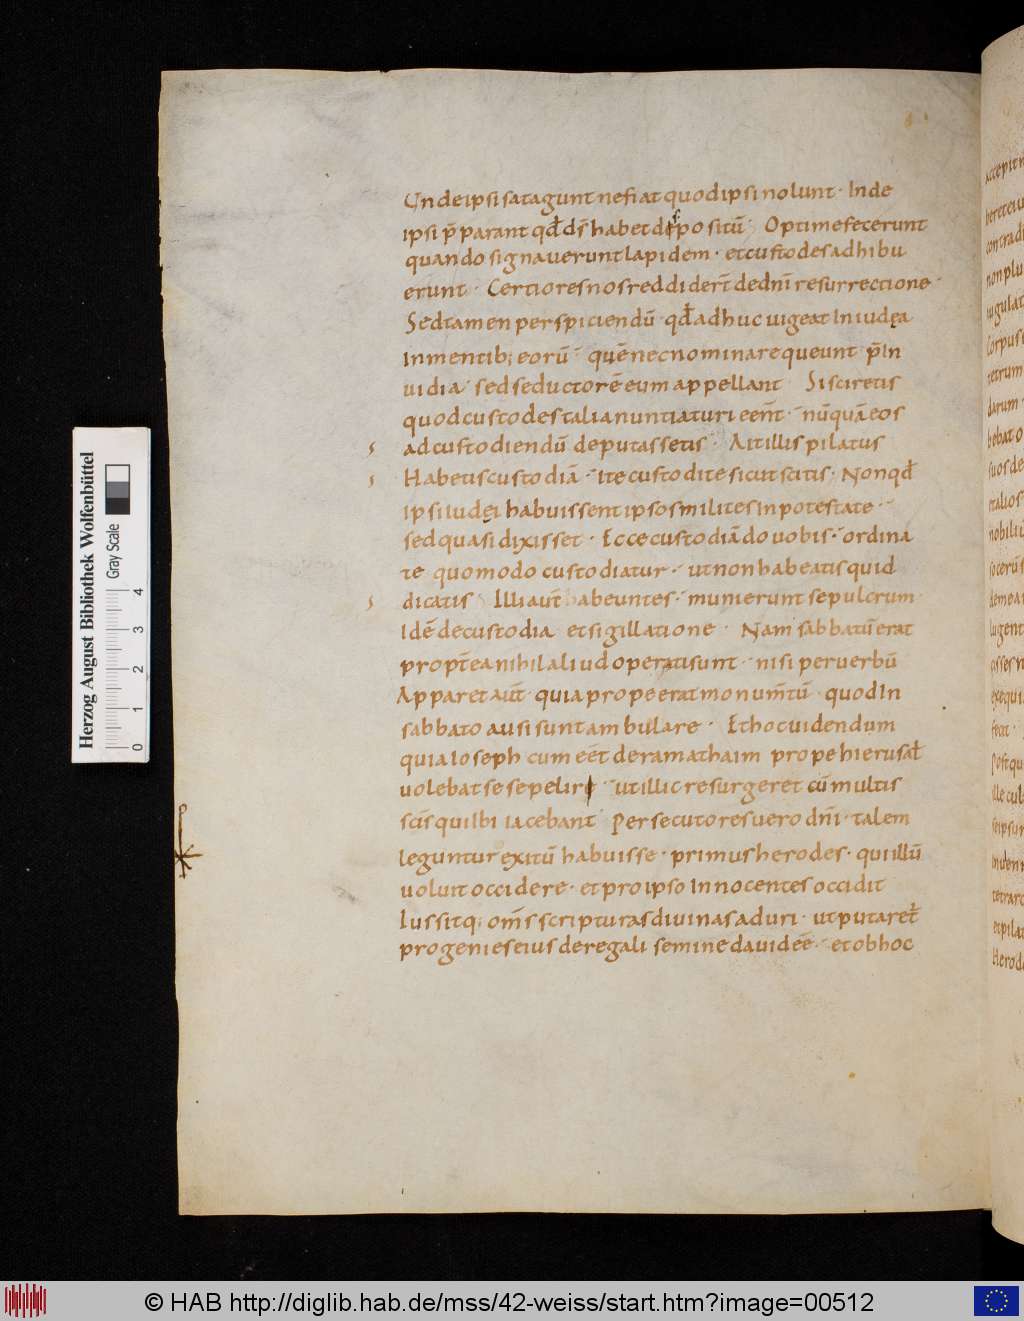 Undeipsi satagunt nefiat quod ipsi nolunt · Inde
ipsi p̄parant qđ dn̄s habet dispositū · Optime fecerunt
quando signauerunt lapidem · et custodes adhibu
erunt · Certiores nos reddider̄t de dnī resurrectione ·
Sed tamen perspiciendū · qđ adhuc uigeat In iudęa
In mentib; eorū · quē nec nominare queunt p̄ In
uidia · sed seductorē eum appellant · Si sciretis
quod custodes talia nuntiaturi een̄t · nūquā eos
ad custodiendū deputassetis · Ait illis pilatus
Habetis custodiā · ite custodite sicut scitis · Non qđ
ipsi iudęi habuissent ipsos milites In potestate ·
sed quasi dixisset · Ecce custodiā do uobis · ordina
te quomodo custodiatur · ut non habeatis quid
dicatis Illi aut̄ abeuntes · munierunt sepulcrum ·
Idē de custodia et sigillatione · Nam sabbatū erat
propt̄ea nihil aliud operati sunt · nisi per uerbū
Apparet aut̄ · quia prope erat monum̄tū · quod In
sabbato ausi sunt ambulare · Et hoc uidendum
quia Ioseph cum eēt de ramathaim prope hierusal̄
uolebat se sepeliri · ut illic resurgeret cū multis
scīs qui Ibi iacebant · Persecutores uero dnī · talem
leguntur exitū habuisse · primus herodes · qui illū
uoluit occidere · et pro ipso Innocentes occidit
Iussitq; om̄s scripturas diuinas aduri · ut putaret̄
progenies eius de regali semine dauid eē · et ob hoc
Herzog August Bibliothek Wolfenbüttel
Gray Scale
0 1 2 3 4
© HAB http://diglib.hab.de/mss/42-weiss/start.htm?image=00512